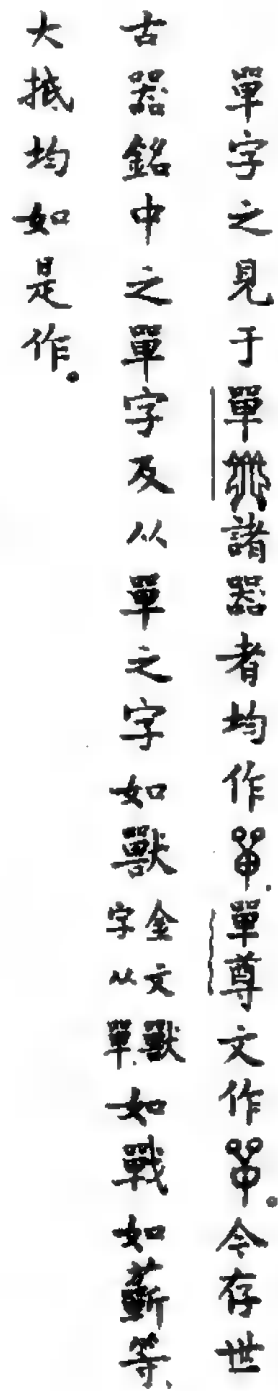 單字之見于單諸器者均作，單尊文作。今存世
古器銘中之單字及从單之字如獸金文獸字从單，如戰如蘄等，
大抵均如是作。